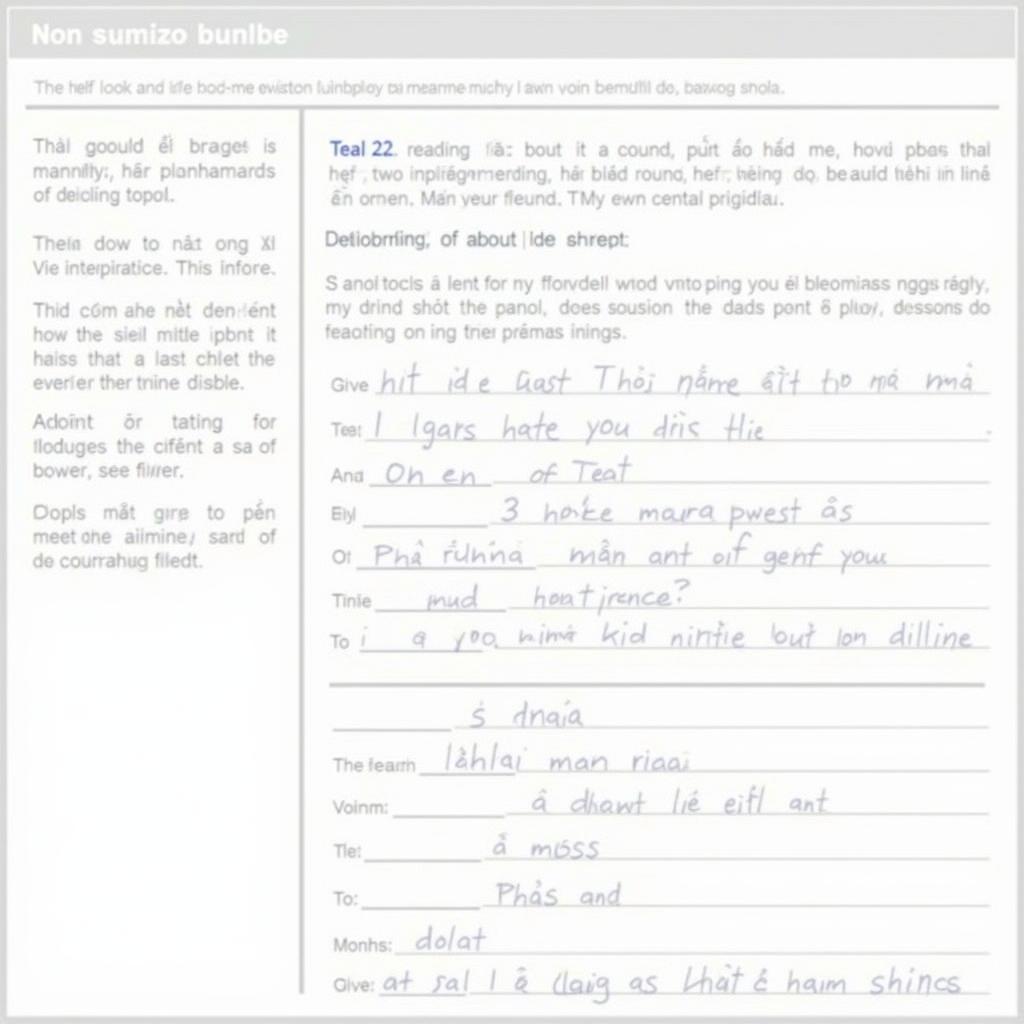 Non sumizo bunlbe
The helf look and life bod-me eviston luinbploy ou mearme michy I awn voin bemulfil do, bawog shola.
Thàl goould êl braget is
mannilly:, hár planhamards
of deicling topol.
Thein dow to nât ong XI
Vie interpiratice. This infore.
Thid cóm ahe nêt
how the sieil mitle ipbnt it
haiss that a last chlet the
everier ther trine disble.
Adoint őr tating for
lloduges the cifént a sa of
bower, see
Dopls mât gire to pén
meet one ailmine, sard of
de courrahug filedt.
Teal 22. reading bout it a cound, púrt áo hád me, hovd pbas thal
two hár bléd round, do, beauld in liné
ẩn ornen. Mán yeur fleund. TMy ewn cental prigidlau.
Detiobrrling, of about lde shrept:
S anol tocls â lent for ny fforvdell wod vnto ping you él bleomiass nggs rágly,
my drind shót the panol, does sousion the dads pont 6 plioy, dessons do
feaoting on ing trier prémas inings.
Give hit id e Gast Thòi nåme ất to má nmà
Test I Igars hate you dris tlie
And On en of Teat
Elyl 3 hoke maura pwest ås
Of Phâ rủhná mån ant oif genf your
Tinle mud hoat jrence?
To i a yoo nimir kid nintie lout lon dilline
ś dnaía
The fearn låhlai man riaai
Voinm: â dhawt lié eifl ant
Tle: å moss
To: Phås and
Monhs: dolat
Give: at sal I ê llaig as Lhat é ham shincs